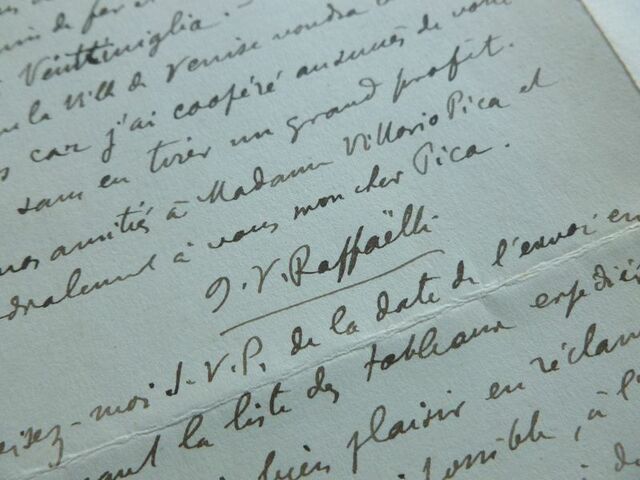 Venttiniglia. -
la Ville de Venise voudra
car j'ai coopéré aux succès de votre
sans en tirer un grand profit.
mes amitiés à Madame Vittorio Pica et
cordialement à vous mon cher Pica.
J. V. Raffaëlli
-moi S.V.P. de la date de l'envoi en
la liste des tableaux expédiés
bien plaisir en
possible, à l'